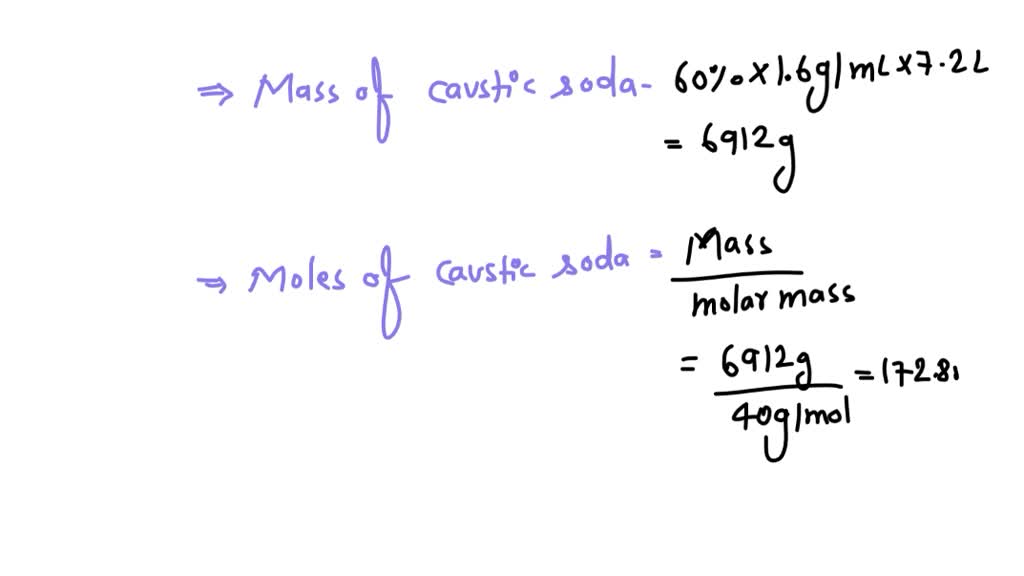 ⇒ Mass of caustic soda- 60% × 1.6g/mL × 7.2L
= 6912g
⇒ Moles of caustic soda = Mass
molar mass
= 6912g = 172.8
40g/mol